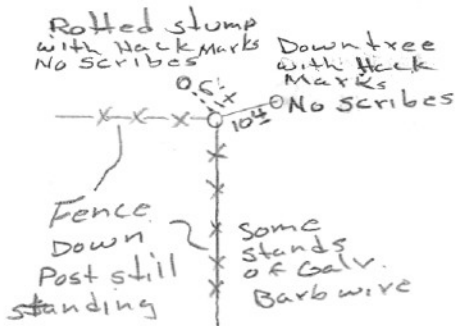 Rotted stump
with Hack Marks
No Scribes
Down tree
with Hack
Marks
No Scribes
104
Fence
Down
Post still
standing
Some
stands
of Galv.
Barb wire